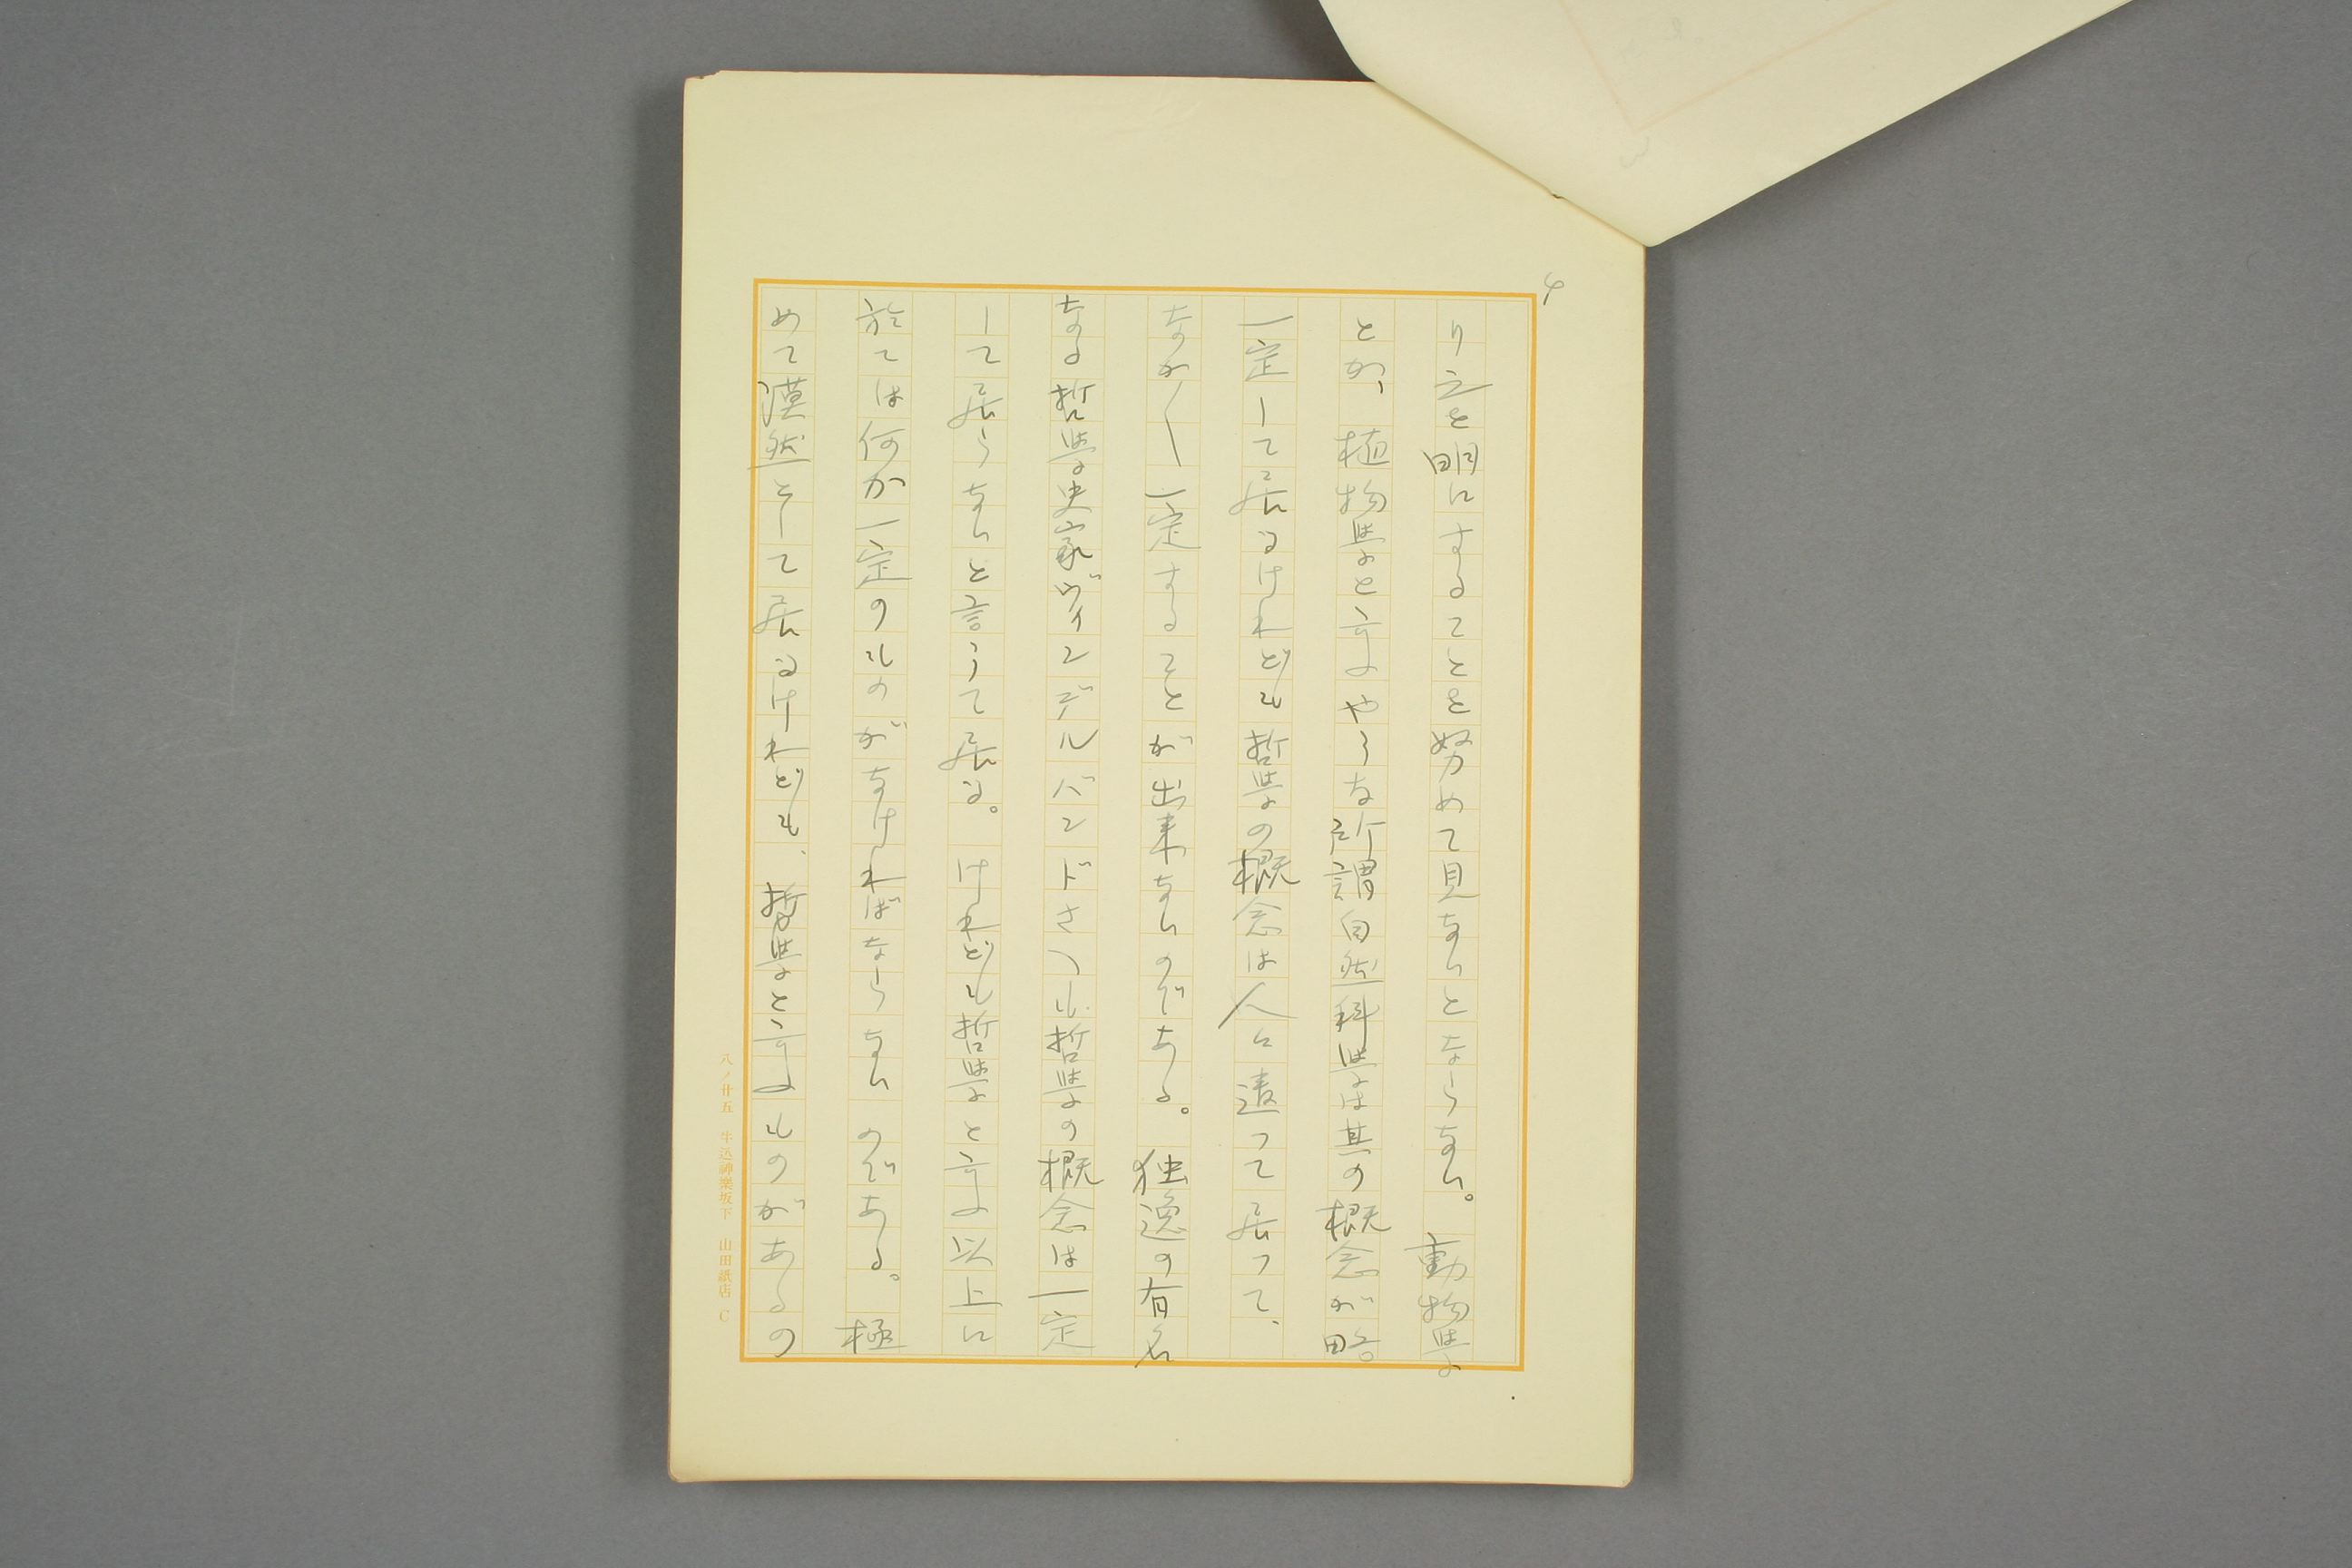 4
り立を明にすることを努めて見ないとならない。動物学
とか、植物学と言ふやうな所謂自然科学は其の概念が略
一定して居るけれども哲学の概念は人に違って居って、
なか〱一定することが出来ないのである。独逸の有名
なる哲学史家ヴィンデルバンドさへも哲学の概念は一定
して居らないと言うて居る。けれども哲学と言ふ以上に
於ては何か一定のものがなければならないのである。極
めて漠然として居るけれども、哲学と言ふものがあるの
八ノ廿五 牛込神樂坂下 山田紙店 C